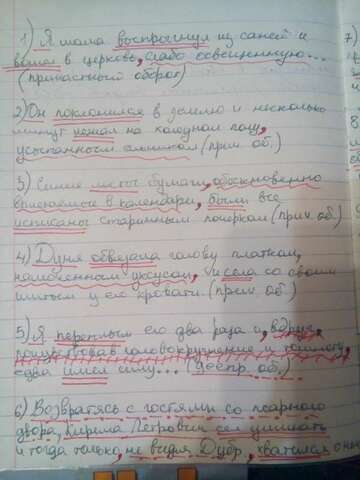 1) Я мама воспрыгнул из саней и
вошел в церковь, слабо освещенную...
(причастный оборот)
2) Он поклонился в землю и несколько
минут лежал на холодном полу,
усыпанным ельником (прич. об.)
3) Синие листы бумаги, обыкновенно
вписаны старинным почерком (прич. об.)
4) Дуня обвязала голову платком,
намоченным уксусом, и села со своим
шитьем у его кровати. (прич. об.)
5) Я переплыл его два раза и, вдруг
почувствовав головокружение и тошноту,
едва имел силу... (деепр. об.)
6) Возвратясь с гостями со псарного
двора, Кирила Петрович сел ужинать
и тогда только, не видя Дубр, хватился о нем
7)
8